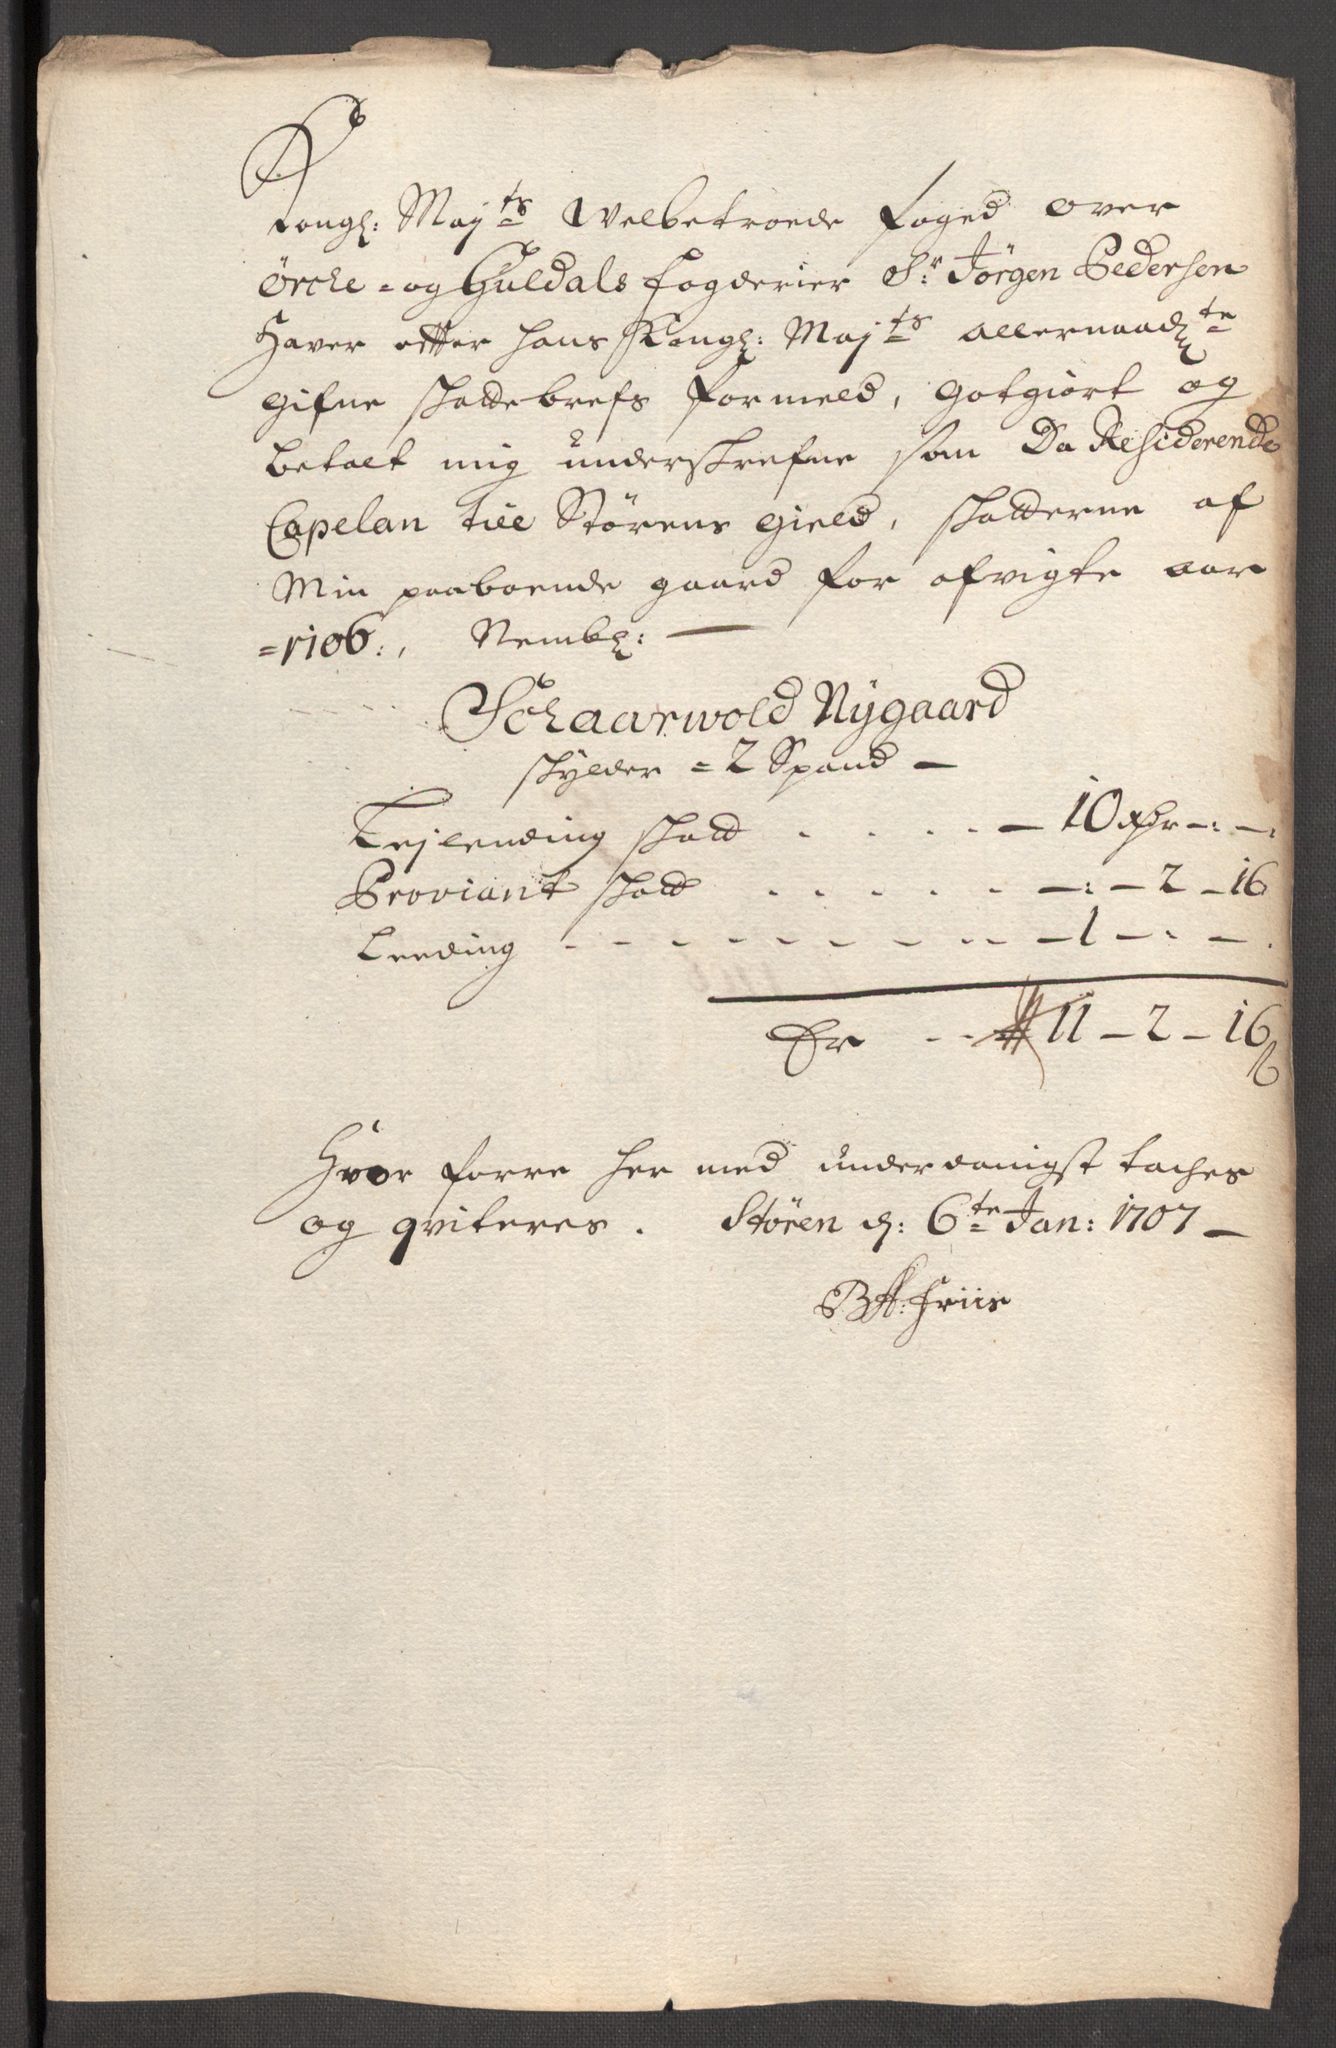 Kongl: Maj:ts Welbetroede foged over
örche - og Guldals fogderier Sr: Jörgen Pedersen
Haver efter hans Kongl: Maj:ts allernaadgte
gifne skattebrefs formeld, gotgiort og
betalt mig underskrefne som Da Residerende
Capelan till Störens gield, skatterne af
Min paaboende gaard for afvigte aar
=1706:, Nembl:
Schaarwold Nÿgaard
skÿlder = 2 Spand -
Lejlending skatt . . . . - 10 Rdr - : - :
Proviant skatt . . . . . - : - 2 - 16
Leeding - - - - - - - - - - 1 - : - .
Er - - 11 - 2 - 16
Hvor forre her med underdanigst tackes
og qviteres. Stören d: 6te Jan: 1707 -
BA: Friis